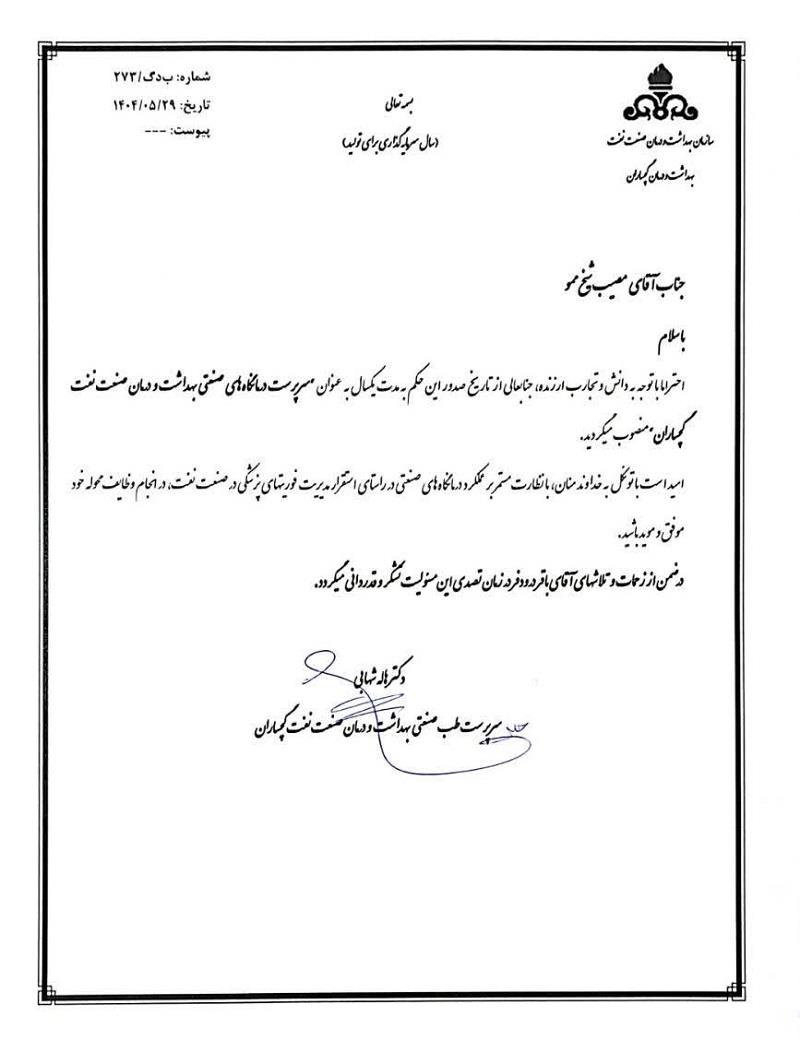 شماره: ب‌دگ/۲۷۳
تاریخ: ۱۴۰۴/۰۵/۲۹
پیوست: ---
بسمه تعالی
(سال سرمایه گذاری برای تولید)
سازمان بهداشت و درمان صنعت نفت
بهداشت و درمان گچساران
جناب آقای مصیب شیخ ممو
باسلام
احتراما با توجه به دانش و تجارب ارزنده، جنابعالی از تاریخ صدور این حکم به مدت یکسال به عنوان "سرپرست درمانگاه های صنعتی بهداشت و درمان صنعت نفت
گچساران" منصوب میگردید.
امید است با توکل به خداوند منان، با نظارت مستمر بر عملکرد درمانگاه های صنعتی در راستای استقرار مدیریت فوریتهای پزشکی در صنعت نفت، در انجام وظایف محوله خود
موفق و موید باشید.
در ضمن از زحمات و تلاشهای آقای باقر درودفر در زمان تصدی این مسئولیت تشکر و قدردانی میگردد.
دکتر هاله شهابی
سرپرست طب صنعتی بهداشت و درمان صنعت نفت گچساران